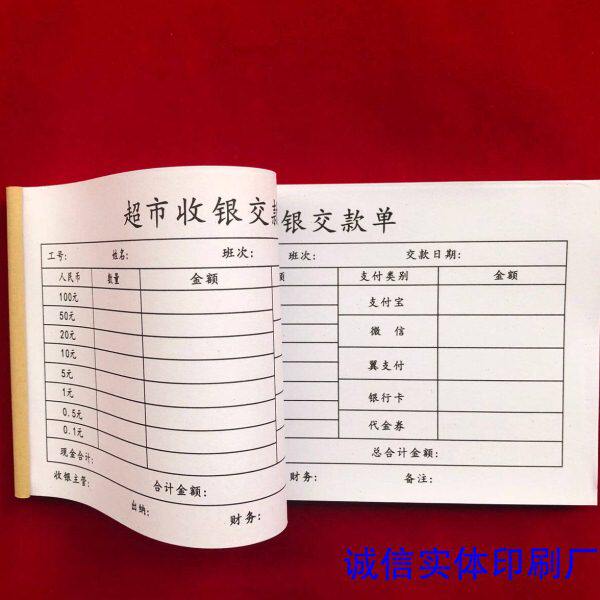 超市收银交款
工号: 姓名: 班次:
人民币 数量 金额
100元
50元
20元
10元
5元
1元
0.5元
0.1元
现金合计:
合计金额:
收银主管: 出纳: 财务:
银交款单
班次: 交款日期:
额 支付类别 金额
支付宝
微信
翼支付
银行卡
代金券
总合计金额:
财务: 备注:
诚信实体印刷厂